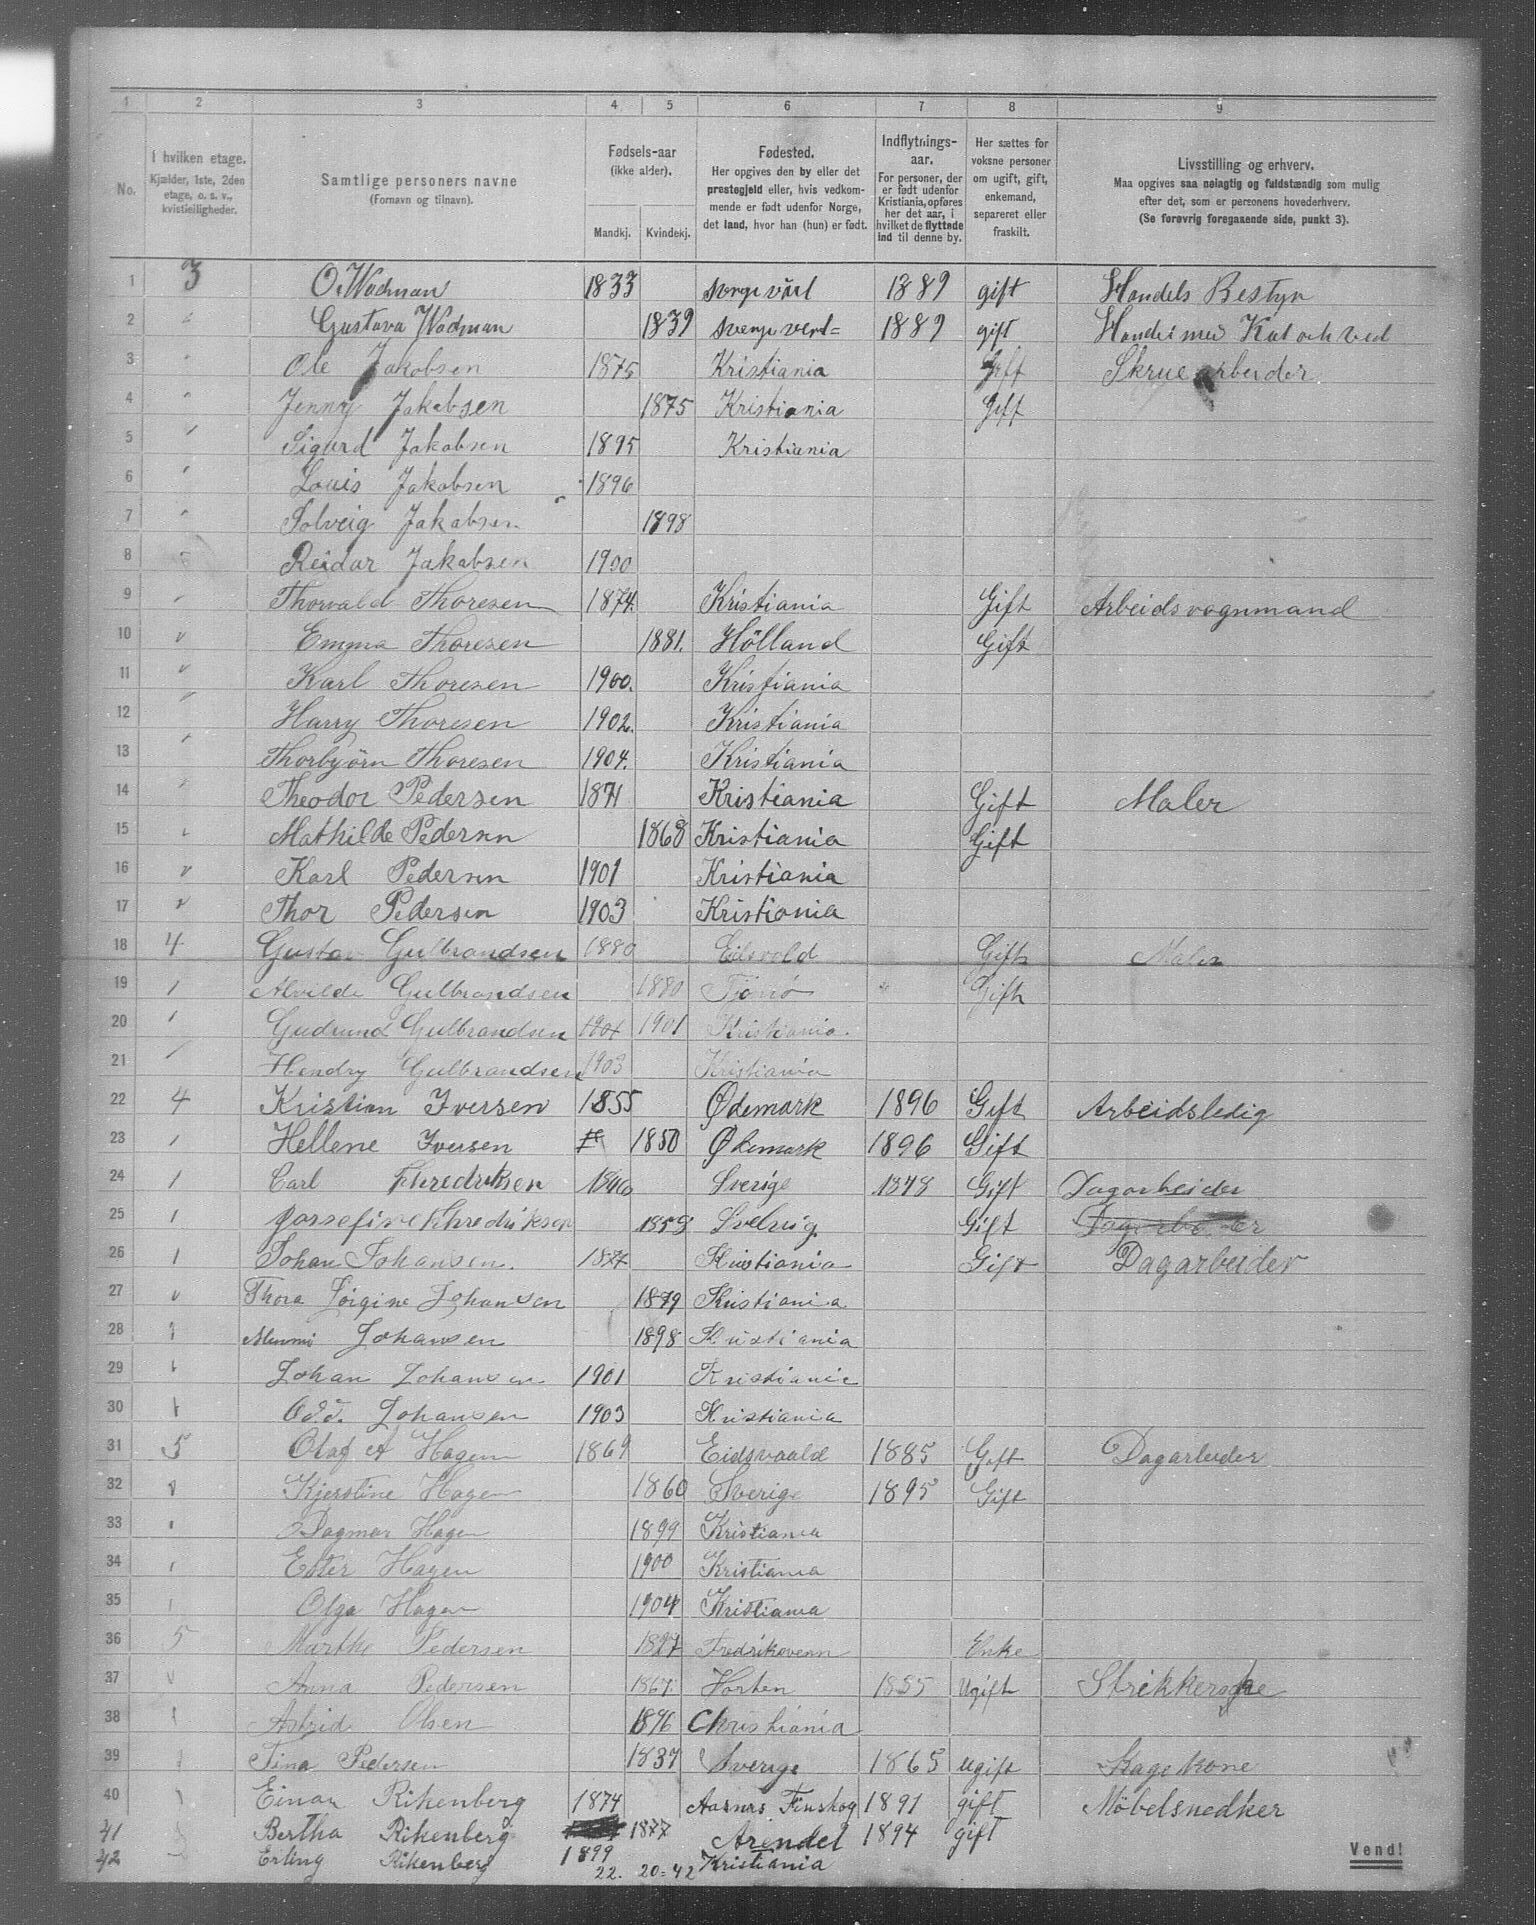 1 2 3 4 5 6 7 8 9
No.
I hvilken etage.
Kjælder, 1ste, 2den
etage, o. s. v.,
kvistleiligheder.
Samtlige personers navne
(Fornavn og tilnavn).
Fødsels-aar
(ikke alder).
Mandkj. Kvindekj.
Fødested.
Her opgives den by eller det
prestegjeld eller, hvis vedkom-
mende er født udenfor Norge,
det land, hvor han (hun) er født.
Indflytnings-
aar.
For personer, der
er født udenfor
Kristiania, opføres
her det aar, i
hvilket de flyttede
ind til denne by.
Her sættes for
voksne personer
om ugift, gift,
enkemand,
separeret eller
fraskilt.
Livsstilling og erhverv.
Maa opgives saa nøiagtig og fuldstændig som mulig
efter det, som er personens hovederhverv.
(Se forøvrig foregaaende side, punkt 3).
1 3 O. Wadman 1833 1889 gift Handels Bestyr
2 Gustava Wadman 1839 1889 gift Handel med Kul och ved
3 Ole Jakobsen 1875 Kristiania Gift Skruearbeider
4 Jenny Jakobsen 1875 Kristiania Gift
5 Sigurd Jakobsen 1895 Kristiania
6 Louis Jakobsen 1896
7 Solveig Jakobsen 1898
8 Reidar Jakobsen 1900
9 Thorvald Thoresen 1874. Kristiania Gift Arbeidsvognmand
10 Emma Thoresen 1881. Hölland Gift
11 Karl Thoresen 1900. Kristiania
12 Harry Thoresen 1902. Kristiania
13 Thorbjörn Thoresen 1904. Kristiania
14 Theodor Pedersen 1871 Kristiania Gift Maler
15 Mathilde Pedersen 1868 Kristiania Gift
16 Karl Pedersen 1901 Kristiania
17 Thor Pedersen 1903 Kristiania
18 4 Gustav Gulbrandsen 1880 Eidsvold Gift Maler
19 Alvilde Gulbrandsen 1880 Gift
20 Gudrund Gulbrandsen 1901 1901 Kristiania.
21 Hendry Gulbrandsen 1903 Kristiania
22 4 Kristian Iversen 1855 Ødemark 1896 Gift Arbeidsledig
23 Hellene Iversen 1850 Ødemark 1896 Gift
24 Carl Fhredriksen 1846 Sverige 1878 Gift Dagarbeider
25 Jossefine Fhredriksen 1858 Svelvig Gift Dagarbeider
26 Johan Johansen. 1877 Kristiania Gift Dagarbeider
27 Thora Jörgine Johansen 1879 Kristiania
28 Johansen 1898 Kristiania
29 Johan Johansen 1901 Kristiania
30 Odd. Johansen 1903 Kristiania
31 5 Olaf A Hagen 1869 Eidsvaald 1885 Gift Dagarbeider
32 Kjerstine Hagen 1860 Sverige 1895 Gift
33 Dagmar Hagen 1899 Kristiania
34 Ester Hagen 1900 Kristiania
35 Olga Hagen 1904 Kristiania
36 5 Marthe Pedersen 1827 Fredriksvern Enke
37 Anna Pedersen 1867. Horten 1885 Ugift Strikkerske
38 Astrid Olsen 1896 Christiania
39 Tina Pedersen 1837 Sverige 1865 ugift Kagekone
40 Einar Rikenberg 1874 Aasnes Finskog 1891 gift Möbelsnedker
41 Bertha Rikenberg 1877 Arendel 1894 gift
42 Erling Rikenberg 1899 Kristiania
22. 20=42
Vend!